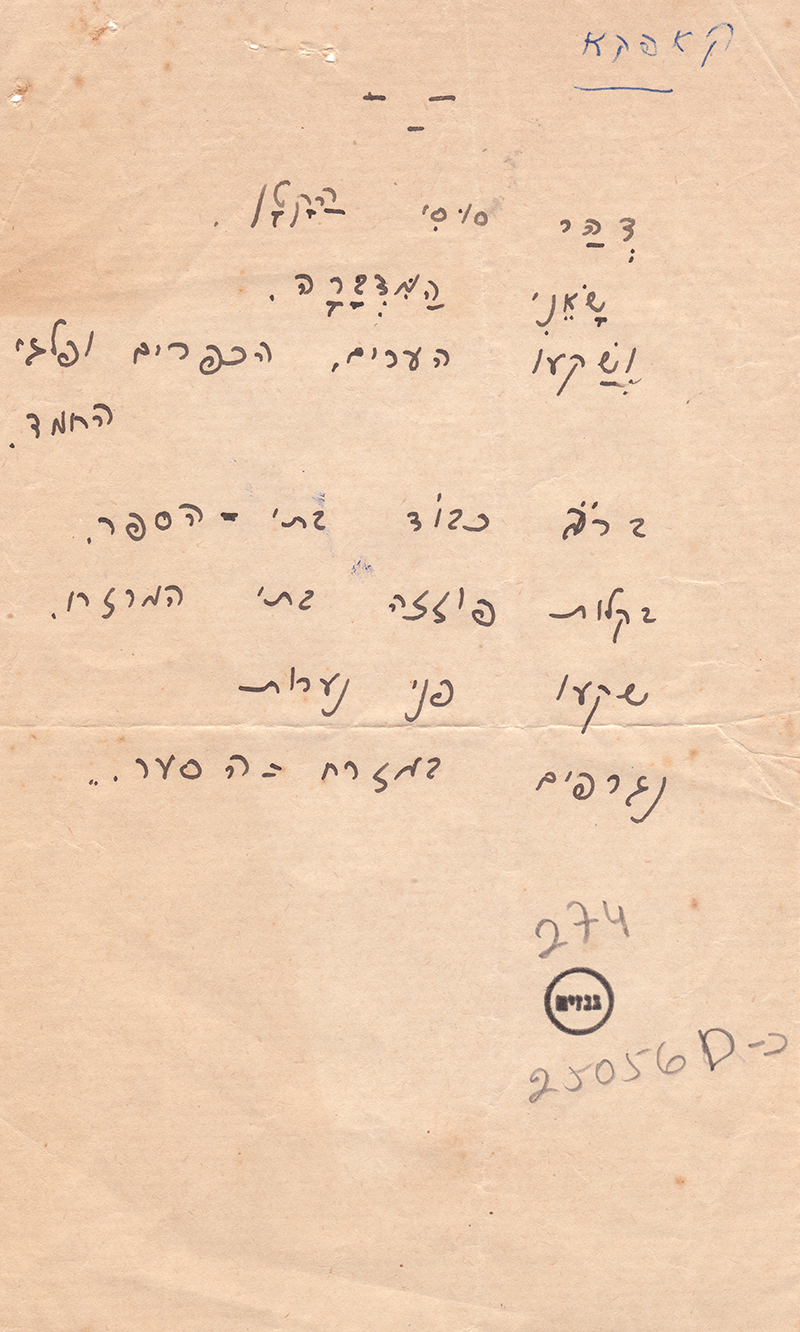 קאפקא
דְּהַר סוּסִי הַקָּטָן.
שָׂאֵנִי הַמִּדְבָּרָה.
וְשַׁקעו הערים, הכפרים ופלגי
החמד.
ברֹב כבוֹד בתי-הספר.
בקלות פוזזה בתי המרזח.
שקעו פני נערות
נגרפים במזרח-הסער...
274
גנזים
25056 כ-D